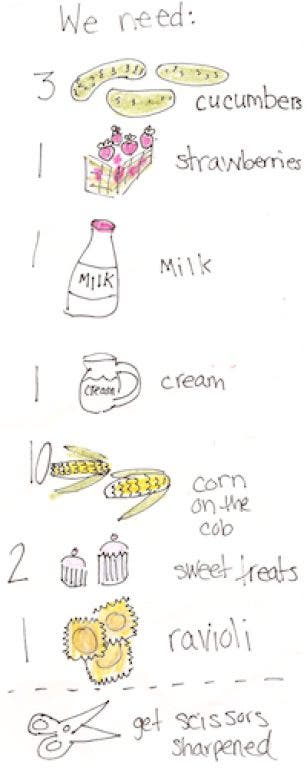 We need:
3 cucumbers
1 strawberries
1 MILK Milk
1 cream cream
10 corn
on the
cob
2 sweet treats
1 ravioli
get scissors
sharpened